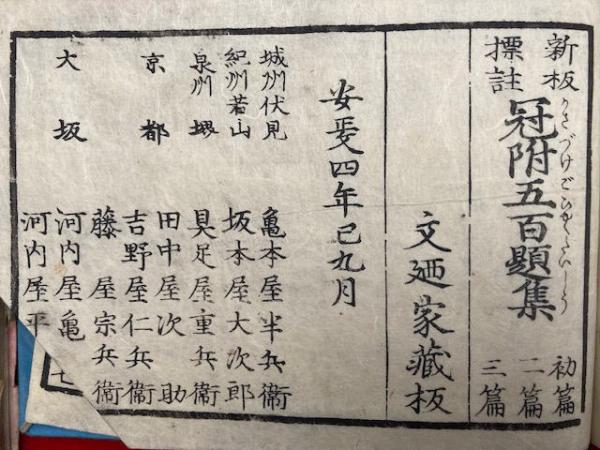 新板
標註
冠附五百題集
かさづけごひやくだいしう
初篇
二篇
三篇
文廼家藏板
安政四年巳九月
城州伏見 亀本屋半兵衞
紀州若山 坂本屋大次郎
泉州堺 具足屋重兵衞
京都 田中屋次助
吉野屋仁兵衞
藤屋宗兵衞
大坂 河内屋亀七
河内屋平